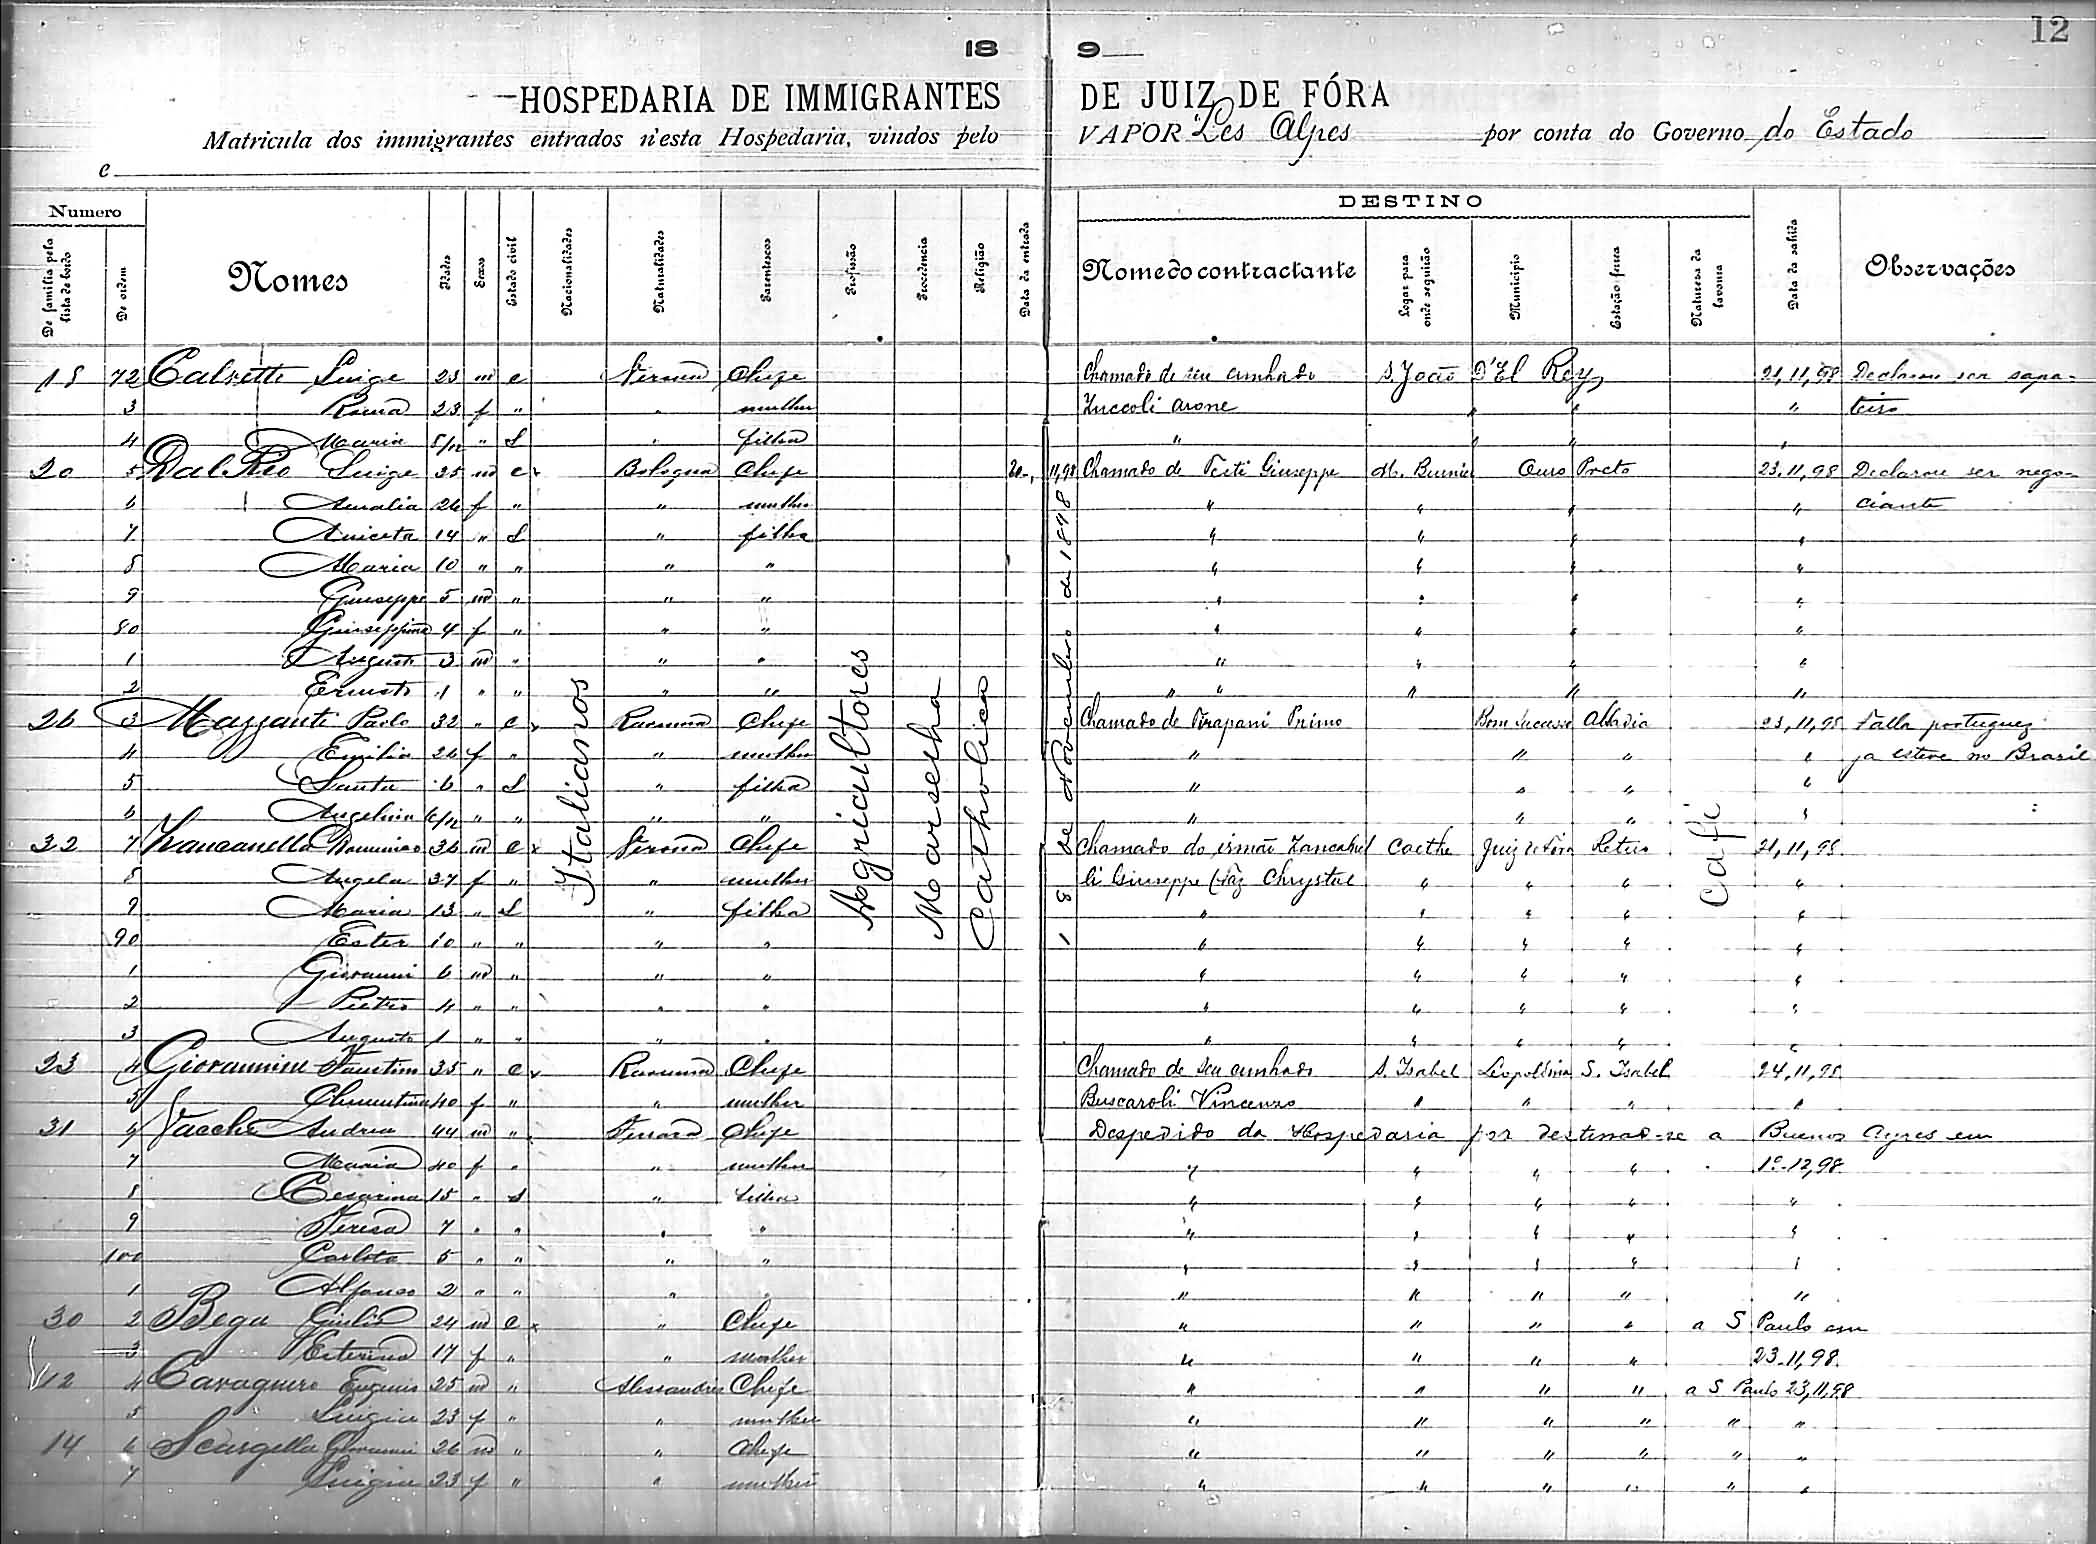 12
18 9
HOSPEDARIA DE IMMIGRANTES DE JUIZ DE FÓRA
Matricula dos immigrantes entrados n'esta Hospedaria, vindos pelo VAPOR Les Alpes por conta do Governo do Estado
e
Numero DESTINO
De familia pela lista de bordo De ordem Nomes Idades Sexos Estado civil Nacionalidades Naturalidades Parentescos Profissão Procedencia Religião Data da entrada Nome do contractante Logar para onde seguirão Municipio Estação ferrea Natureza da lavoura Data da sahida Observações
72 Luige 23 m c Verona Chefe Chamado de seu cunhado S. João D'El Rey 21,11,98 Declarou ser sapa-
3 23 f " " mulher Zuccoli Arone " " " teiro
4 Maria 5/12 " S " filha " " " "
20 5 Dal Rio Luige 35 m c Bologna Chefe 20-,11,98 Chamado de Testi Giuseppe M. Burnier Ouro Preto 23,11,98 Declarou ser nego-
6 Amalia 26 f " " mulher " " " " ciante
7 Aniceta 14 " S " filha " " " "
8 Maria 10 " " " " " " " "
9 Giuseppe 5 m " " " " " " "
80 Giuseppina 4 f " " " " " " "
1 Augusto 3 m " " " " " " "
2 Ernesto 1 " " " " " " " " "
26 3 Mazzanti Paolo 32 " c Ravenna Chefe Chamado de Tirapani Primo Bom Sucesso 23,11,98 Falla portuguez
4 Emilia 26 f " " mulher " " " " ja esteve no Brazil
5 Santa 6 " S " filha " " " "
6 Angelina 6/12 " " " " " " " "
32 7 Zancanella Domenico 36 m c Verona Chefe Chamado do irmão Zancanel Caethe Juiz de Fóra Retiro 21,11,98
8 Angela 37 f " " mulher li Giuseppe Chrystal " " " "
9 Maria 13 " S " filha " " " " "
90 Ester 10 " " " " " " " " "
1 Giovanni 6 m " " " " " " " "
2 Pietro 4 " " " " " " " " "
3 Augusto 1 " " " " " " " " "
23 4 Giovannini Faustino 35 " c Ravenna Chefe Chamado de seu cunhado S. Isabel Leopoldina S. Isabel 24,11,98
5 Clementina 40 f " " mulher Buscaroli Vincenzo " " " "
31 6 Vacchi Andrea 44 m " Ferrara Chefe Despedido da Hospedaria por destinar-se a Buenos Ayres em
7 Maria 40 f " " mulher " " " " 1º-12,98
8 Cesarina 15 " S " filha " " " " "
9 Teresa 7 " " " " " " " " "
100 Carlota 5 " " " " " " " " "
1 Alfonso 2 " " " " " " " " "
30 2 Bega Giulio 24 m c " Chefe " " " " a S Paulo em
3 Esterina 17 f " " mulher " " " " 23-11,98
12 4 Cavagnero Eugenio 25 m " Alessandria Chefe " " " " a S Paulo 23,11,98
5 Luigia 23 f " " mulher " " " " " "
14 6 Giovanni 26 m " " Chefe " " " " " "
7 Luigia 23 f " " mulher " " " " " "
Italianos
Agricultores
Marselha
Catholica
18 de Novembro de 1898
Café